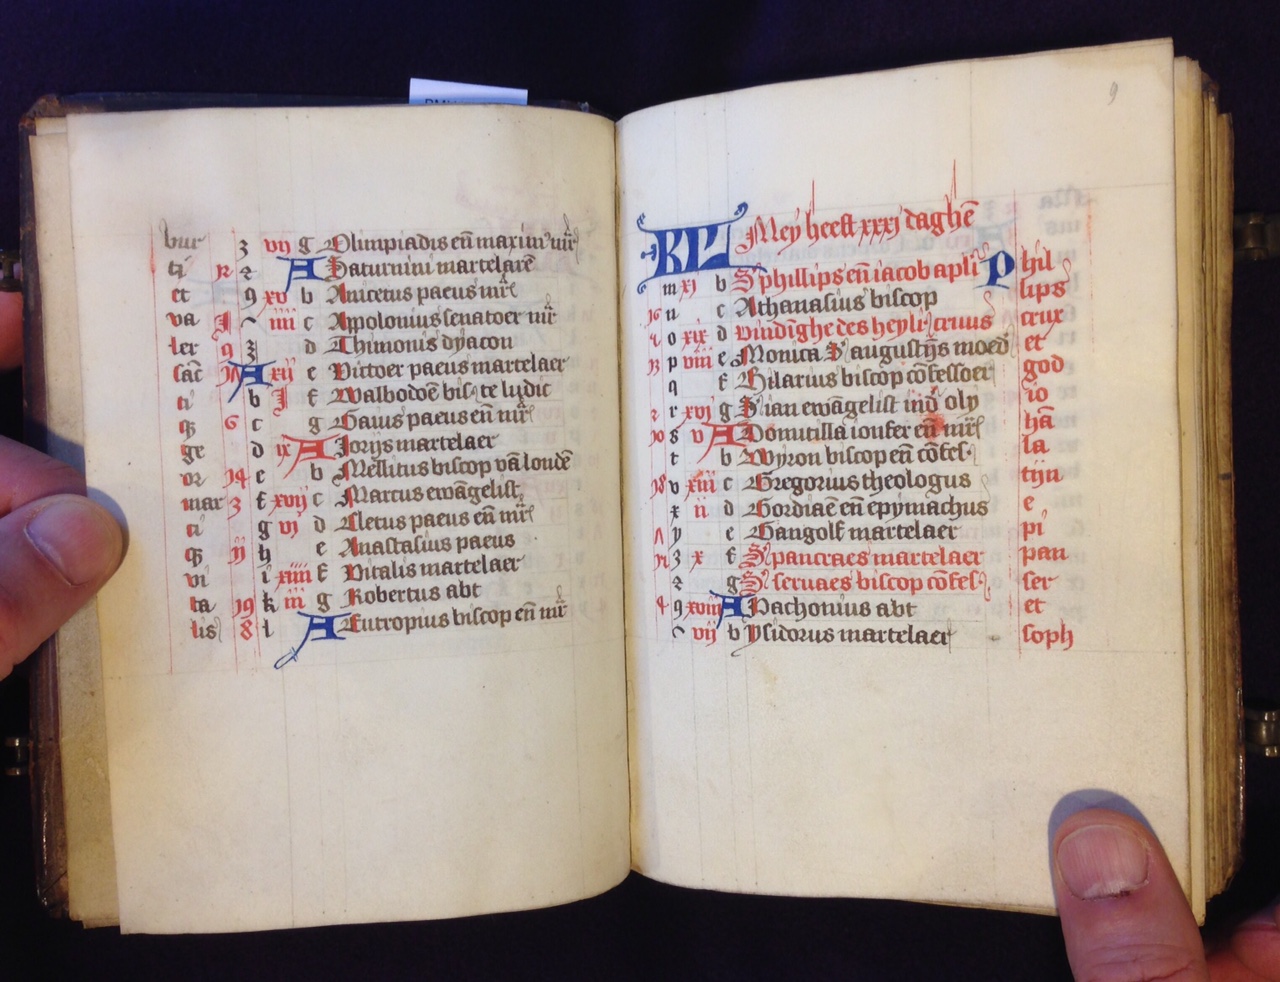 bur 3 vij g Olimpiadis eñ maxim' mr̃
ti 2 A Saturnini martelarē
et 9 xv b Anicetus paeus mr̃
va iiii c Appolonius senatoer mr̃
ler 9 3 d Thimonis dyacon
sāc A xij e Victoer paeus martelaer
ti b f Walbodoē bis te ludic
6 c g Gaius paeus eñ mr̃
ge d ix A Jorijs martelaer
or 14 e b Mellitus biscop vā londē
mar 3 f xvij c Marcus ewāgelist
ti g vj d Cletus paeus eñ mr̃
h e Anastasius paeus
vi i xiiii f Vitalis martelaer
ta 19 k iii g Robertus abt
lis 8 l A Eutropius biscop eñ mr̃
9
KL Mey heeft xxxj daghē
m xj b S' phillips eñ iacob apli Phil
16 n c Athanasius biscop lips
o xix d Vindīghe des heylī cruus crux
13 p viii e Monica S' augustijs moed et
q f Hilarius biscop cōfessoer god
2 r xvj g S' ian ewāgelist inđ oly io
10 s v A Domitilla ioufer eñ mr̃ hā
t b Wyron biscop eñ cōfes la
18 v xiii c Gregorius theologus tijn
x ii d Gordiaē eñ epymachus e
y e Gangolf martelaer pi
3 x f S' pancraes martelaer pan
2 g S' seruaes biscop cōfes ser
4 9 xviii A Pachomius abt et
vij b Ysidorus martelaer soph